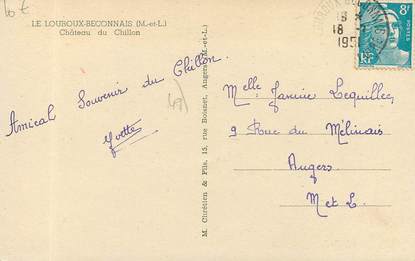 10 €
LE LOUROUX-BECONNAIS (M.-et-L.)
Château du Chillon
Amical Souvenir du Chillon.
Yvette
(49)
M. Chrétien & Fils, 15, rue Boisnet, Angers (M.-et-L.)
18
195
8F
POSTES
RF
Melle Janine Lequillec
9 Rue du Mélinais
Angers
M et L.